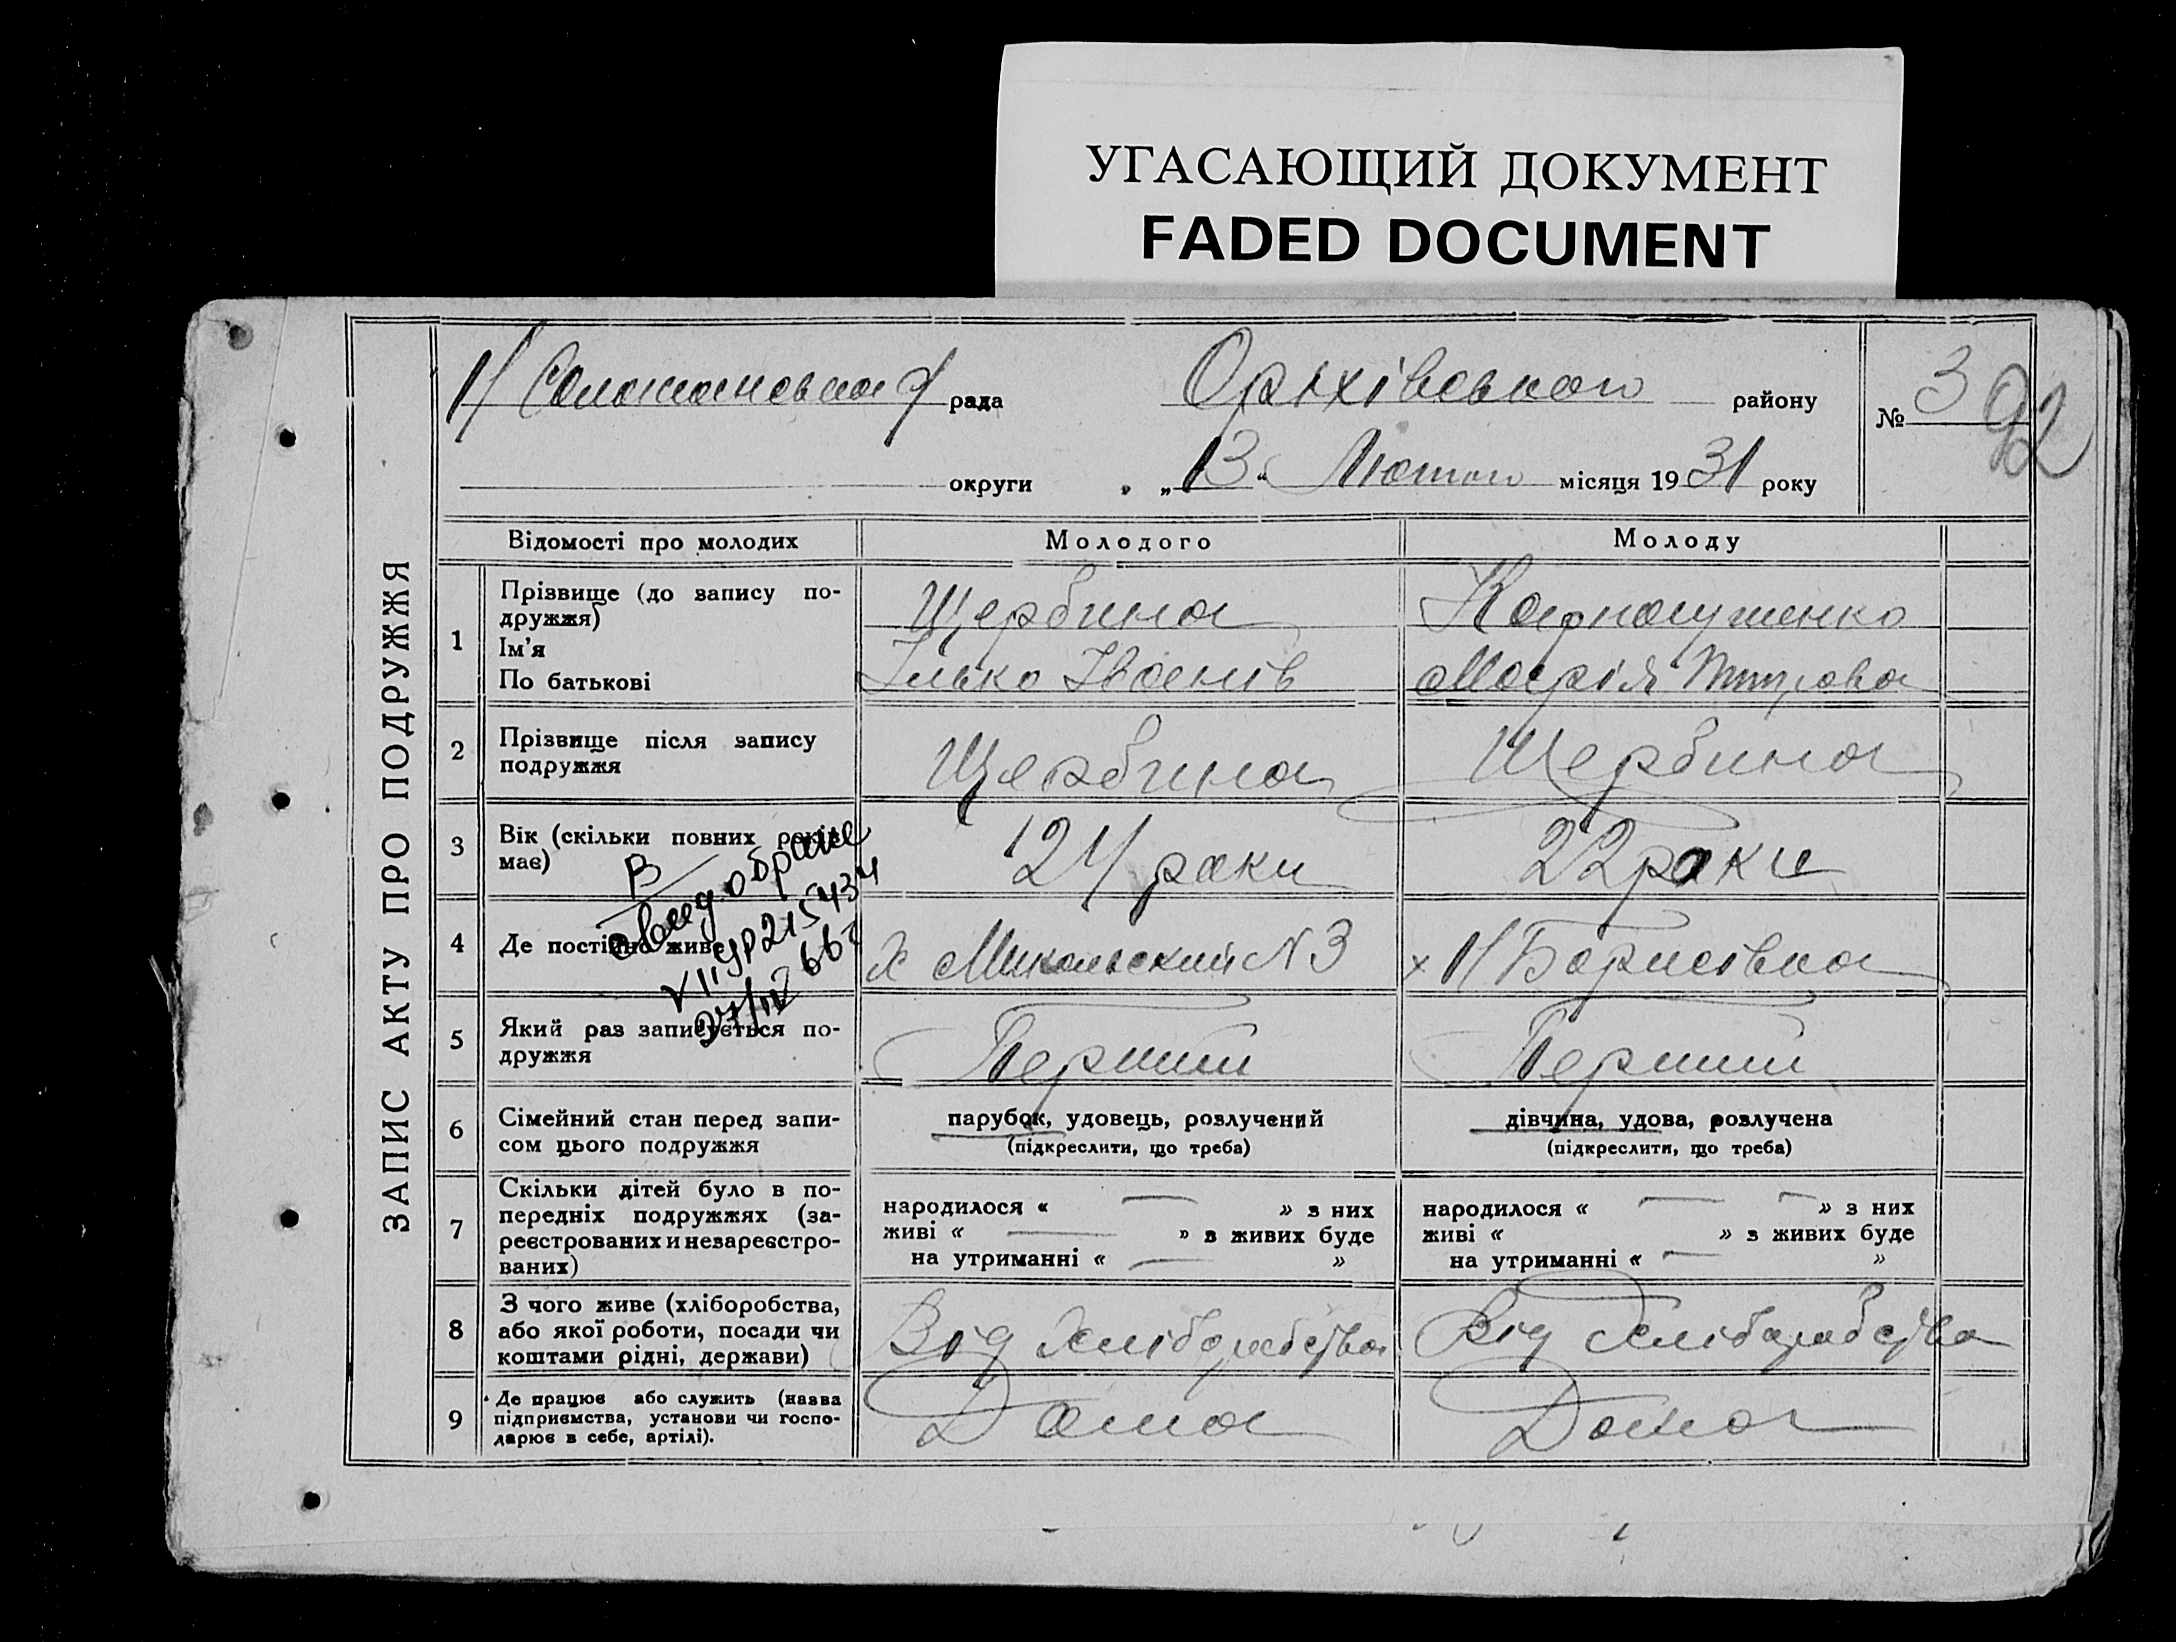 УГАСАЮЩИЙ ДОКУМЕНТ
FADED DOCUMENT
ЗАПИС АКТУ ПРО ПОДРУЖЖЯ
рада Оріхівського району № 3
92
округи „13“ Лютого місяця 1931 року
Відомості про молодих Молодого Молоду
1 Прізвище (до запису по-
дружжя) Щербина
Ім'я
По батькові Ілько Іванів Марія
2 Прізвище після запису
подружжя Щербина Щербина
3 Вік (скільки повних років
має) 24 роки 22 роки
В
свид. о браке
27/IV 66г
4 Де постійно живе х Микольский N 3 х Н/Борисівка
5 Який раз записується по-
дружжя Перший Перший
6 Сімейний стан перед запи-
сом цього подружжя
парубок, удовець, розлучений
(підкреслити, що треба)
дівчина, удова, розлучена
(підкреслити, що треба)
7 Скільки дітей було в по-
передніх подружжях (за-
реєстрованих и незареєстро-
ваних)
народилося « — » з них
живі « — » з живих буде
на утриманні « — »
народилося « — » з них
живі « » з живих буде
на утриманні « — »
8 З чого живе (хліборобства,
або якої роботи, посади чи
коштами рідні, держави)
Від Хліборобства Від Хліборобства
9 Де працює або служить (назва
підприємства, установи чи госпо-
дарює в себе, артілі).
Дома Дома